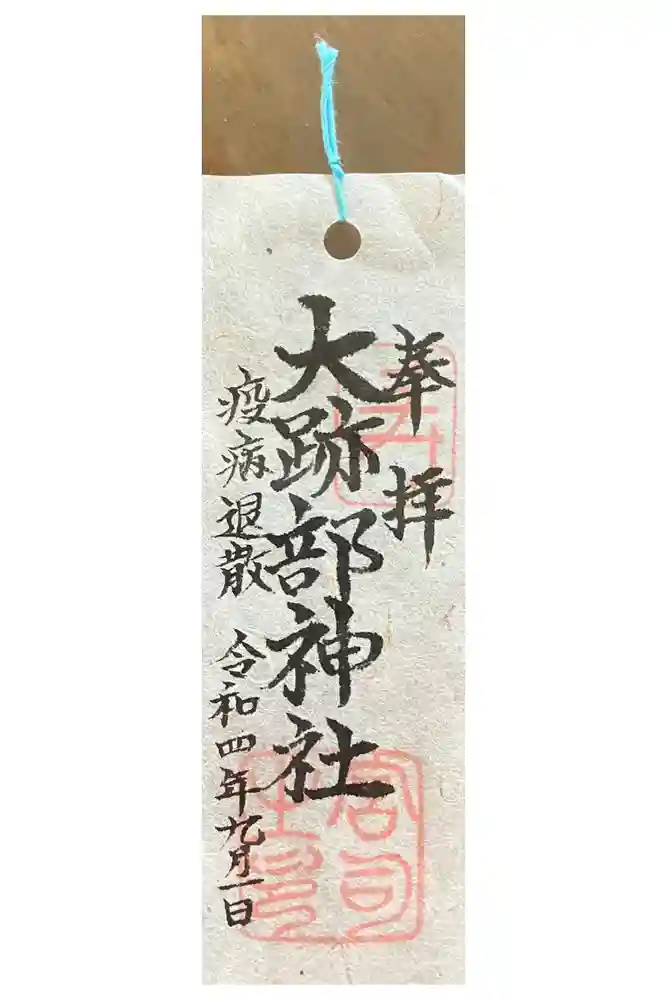 奉拝
大跡部神社
疫病退散 令和四年九月一日
宮司
之印